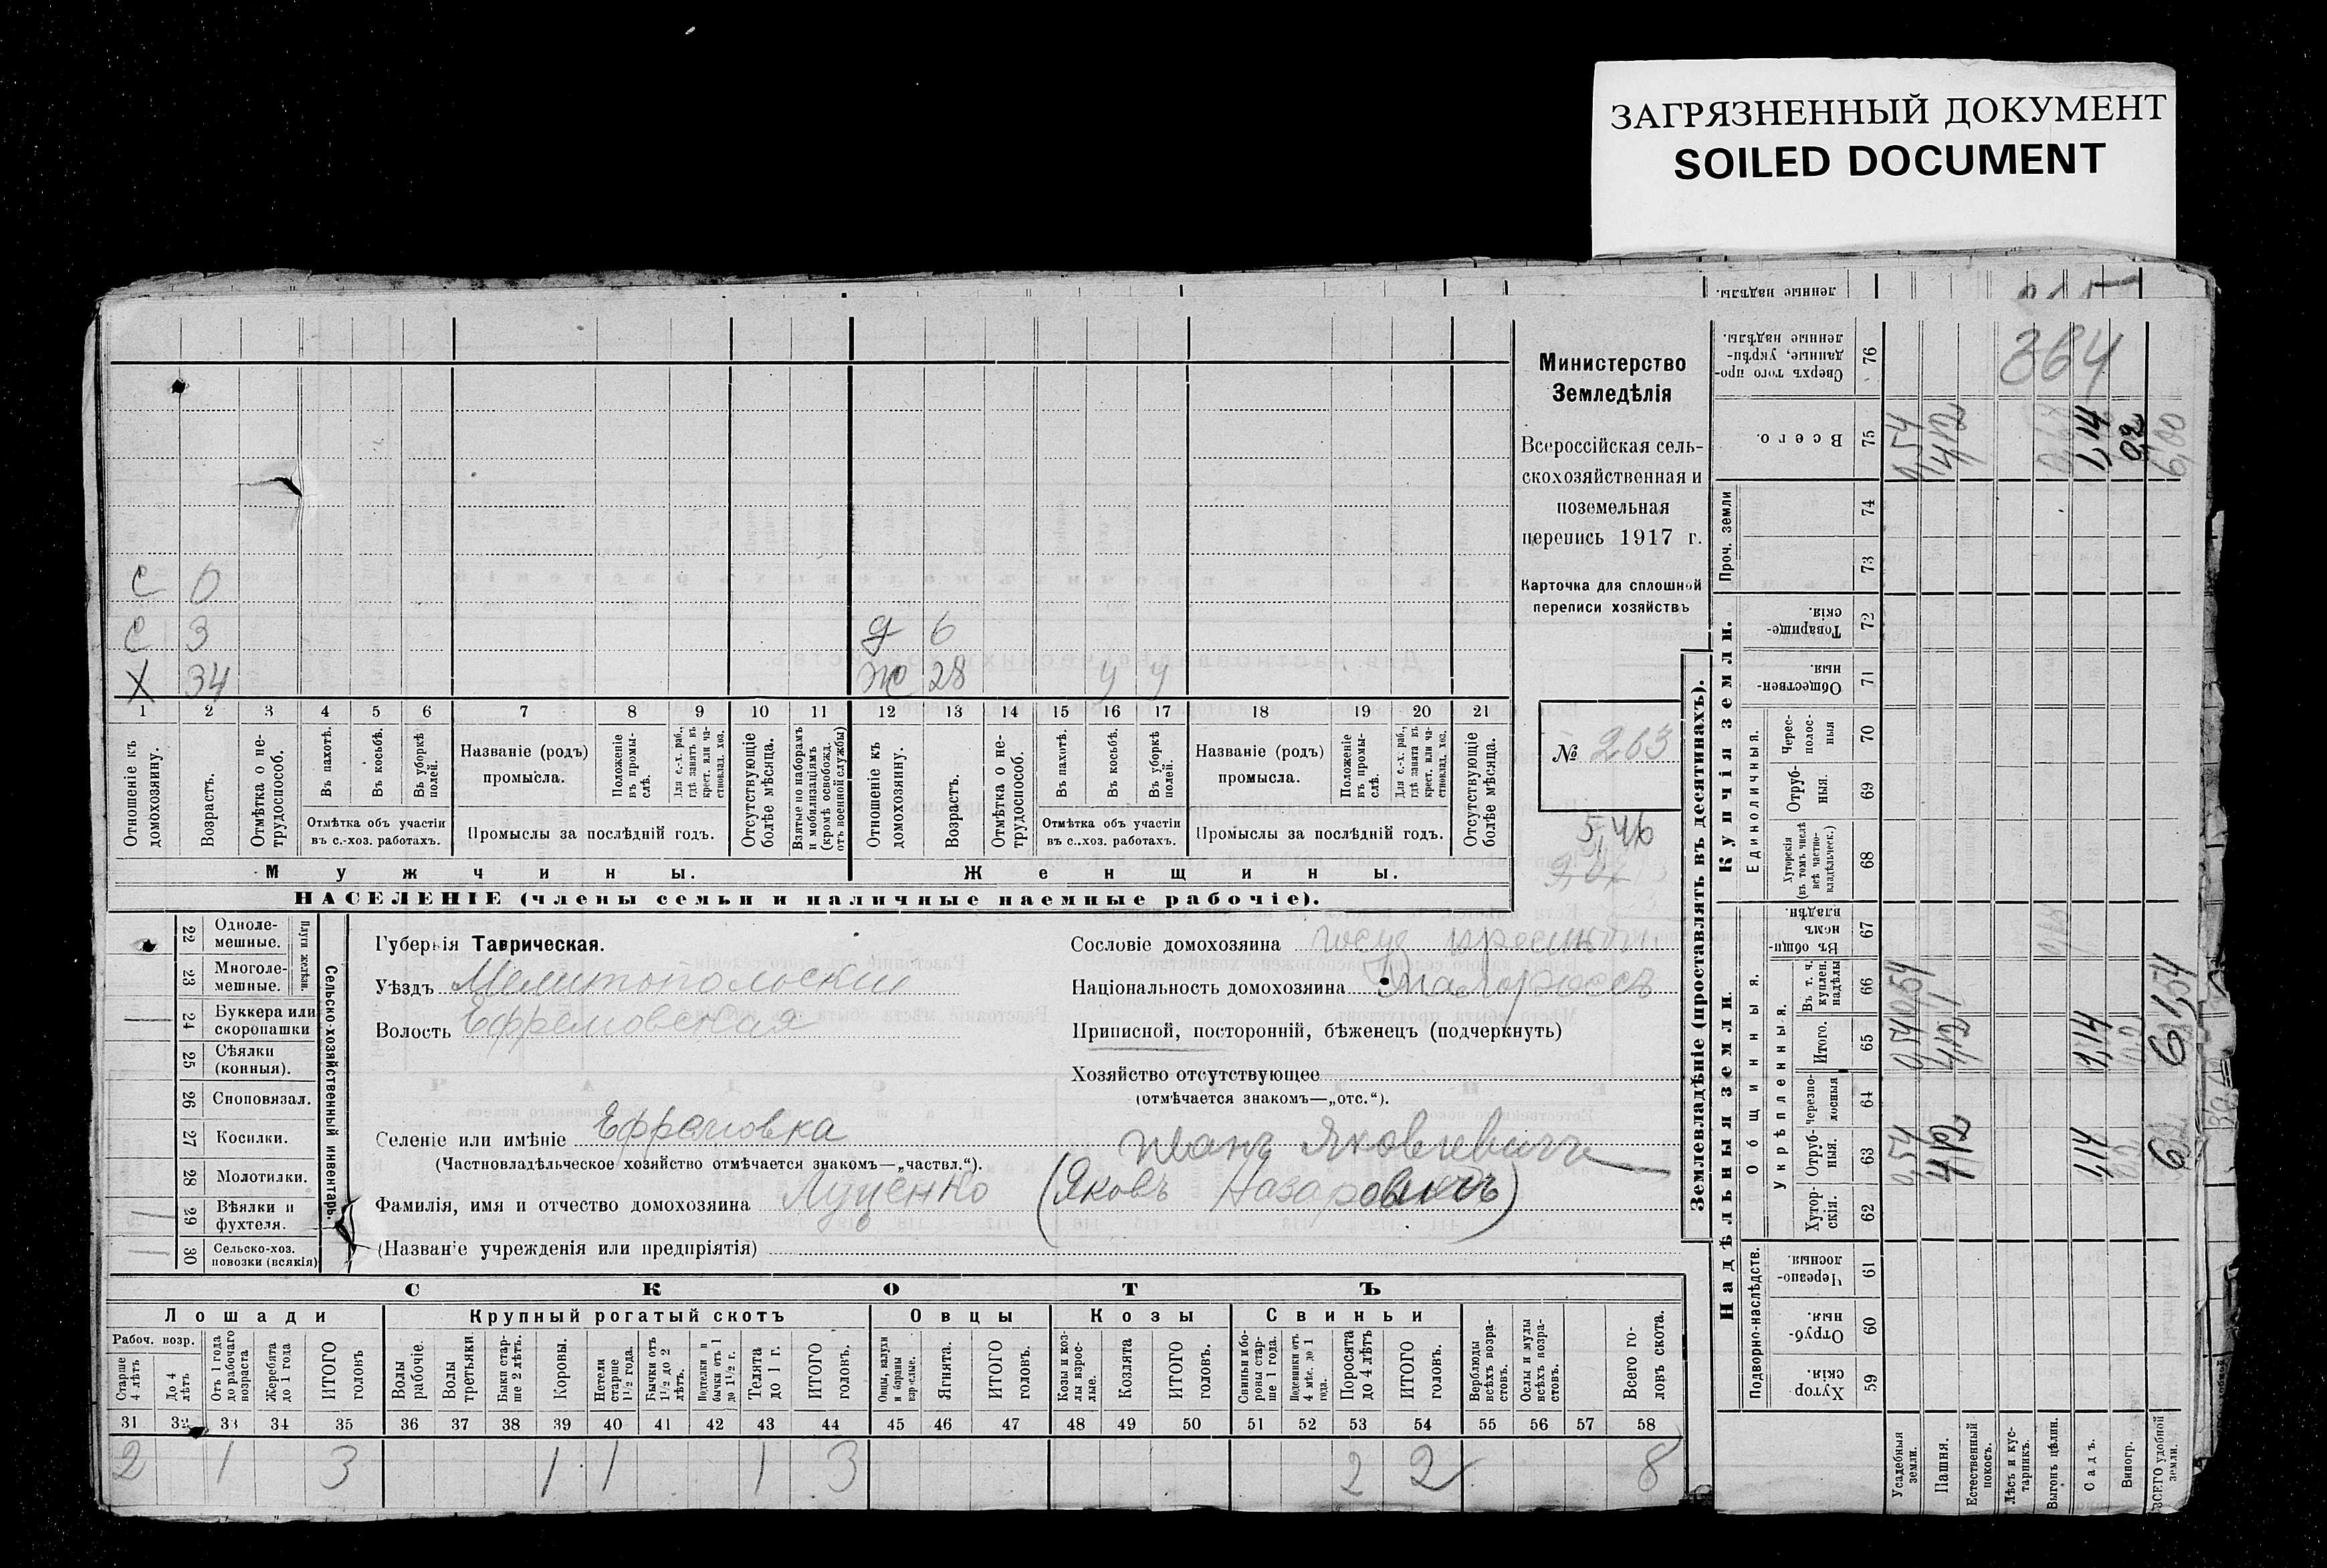 ЗАГРЯЗНЕННЫЙ ДОКУМЕНТ
SOILED DOCUMENT
Министерство
Земледѣлія
Всероссійская сель-
скохозяйственная и
поземельная
перепись 1917 г.
Карточка для сплошной
переписи хозяйствъ
№ 263
5,46
С 0
С 3
Х 34
д 6
ж 28 у у
1 2 3 4 5 6 7 8 9 10 11 12 13 14 15 16 17 18 19 20 21
Отношеніе къ домохозяину.
Возрастъ.
Отмѣтка о не-трудоспособ.
Въ пахотѣ.
Въ косьбѣ.
Въ уборкѣ полей.
Отмѣтка объ участіи
въ с.-хоз. работахъ.
Названіе (родъ)
промысла.
Положеніе въ промы-слѣ.
Для с.-х. раб., гдѣ занятъ въ крест. или ча-стновлад. хоз.
Промыслы за послѣдній годъ.
Отсутствующіе болѣе мѣсяца.
Взятые по наборамъ и мобилизаціямъ (кромѣ освобожд. отъ военной службы)
Отношеніе къ домохозяину.
Возрастъ.
Отмѣтка о не-трудоспособ.
Въ пахотѣ.
Въ косьбѣ.
Въ уборкѣ полей.
Отмѣтка объ участіи
въ с..хоз. работахъ.
Названіе (родъ)
промысла.
Положеніе въ промы-слѣ.
Для с.-х. раб., гдѣ занятъ въ крест. или ча-стновлад. хоз.
Промыслы за послѣдній годъ.
Отсутствующіе болѣе мѣсяца.
Мужчины.
Женщины.
НАСЕЛЕНІЕ (члены семьи и наличные наемные рабочіе).
22 Одноле-мешные.
23 Многоле-мешные.
Плуги желѣзн.
24 Буккера или скоропашки
25 Сѣялки (конныя).
26 Сноповязал.
27 Косилки.
28 Молотилки.
29 Вѣялки и фухтеля.
30 Сельско-хоз. повозки (всякія)
Сельско-хозяйственный инвентарь.
Губернія Таврическая.
Уѣздъ Мелитопольскій
Волость Ефремовская
Селеніе или имѣніе Ефремовка
(Частновладѣльческое хозяйство отмѣчается знакомъ—„частвл.“).
Иванъ Яковлевичъ
Фамилія, имя и отчество домохозяина Луценко (Яковъ Назаровичъ)
(Названіе учрежденія или предпріятія)
Сословіе домохозяина
Національность домохозяина Малороссъ
Приписной, посторонній, бѣженецъ (подчеркнуть)
Хозяйство отсутствующее
(отмѣчается знакомъ—„отс.“).
СКОТЪ
Лошади
Крупный рогатый скотъ
Овцы
Козы
Свиньи
Рабоч. возр.
Старше 4 лѣтъ
До 4 лѣтъ
Отъ 1 года до рабочаго возраста
Жеребята до 1 года
ИТОГО головъ
Волы рабочіе.
Волы третьяки.
Быки стар-ше 2 лѣтъ.
Коровы.
Нетели старше 1½ года.
Бычки отъ 1½ до 2 лѣтъ.
Подтелки и бычки отъ 1 до 1½ г.
Телята до 1 г.
ИТОГО головъ.
Овцы, валухи и бараны взрослые.
Ягнята.
ИТОГО головъ.
Козы и коз-лы взрос-лые.
Козлята
ИТОГО головъ.
Свиньи и бо-ровы стар-ше 1 года.
Подсвинки отъ 4 мѣс. до 1 года.
Поросята до 4 лѣтъ
ИТОГО головъ.
Верблюды всѣхъ возра-стовъ.
Ослы и мулы всѣхъ возра-стовъ.
Всего го-ловъ скота.
31 32 33 34 35 36 37 38 39 40 41 42 43 44 45 46 47 48 49 50 51 52 53 54 55 56 57 58
2 1 3 1 1 1 3 2 2 8
Землевладѣніе (проставлять въ десятинахъ).
Надѣльныя земли.
Купчія земли.
Проч. земли
Подворно-наслѣдств.
Общинныя.
Укрѣпленныя.
Единоличныя.
59 Хутор-скія.
60 Отруб-ныя.
61 Черезпо-лосныя.
62 Хутор-скія.
63 Отруб-ныя.
64 Черезпо-лосныя
65 Итого.
66 Въ т. ч. куплен. надѣлы
67 Въ общин-номъ владѣн.
68 Хуторскія (въ томъ числѣ всѣ частно-владѣльческ.)
69 Отруб-ныя.
70 Черес-полос-ныя
71 Обществен-ныя.
72 Товарище-скія.
73
74
75 Всего.
76 Сверхъ того про-данные, укрѣп-ленные надѣлы.
ленные надѣлы.
364
Усадебныя земли. 0,54 0,54 0,54 0,54
Пашня. 4,12 4,12 4,12
Естественный покосъ.
Лѣсъ и кус-тарникъ.
Выгонъ цѣлин.
Садъ. 1,14 1,14 1,14
Виногр. 0,2
ВСЕГО удобной земли. 6,00